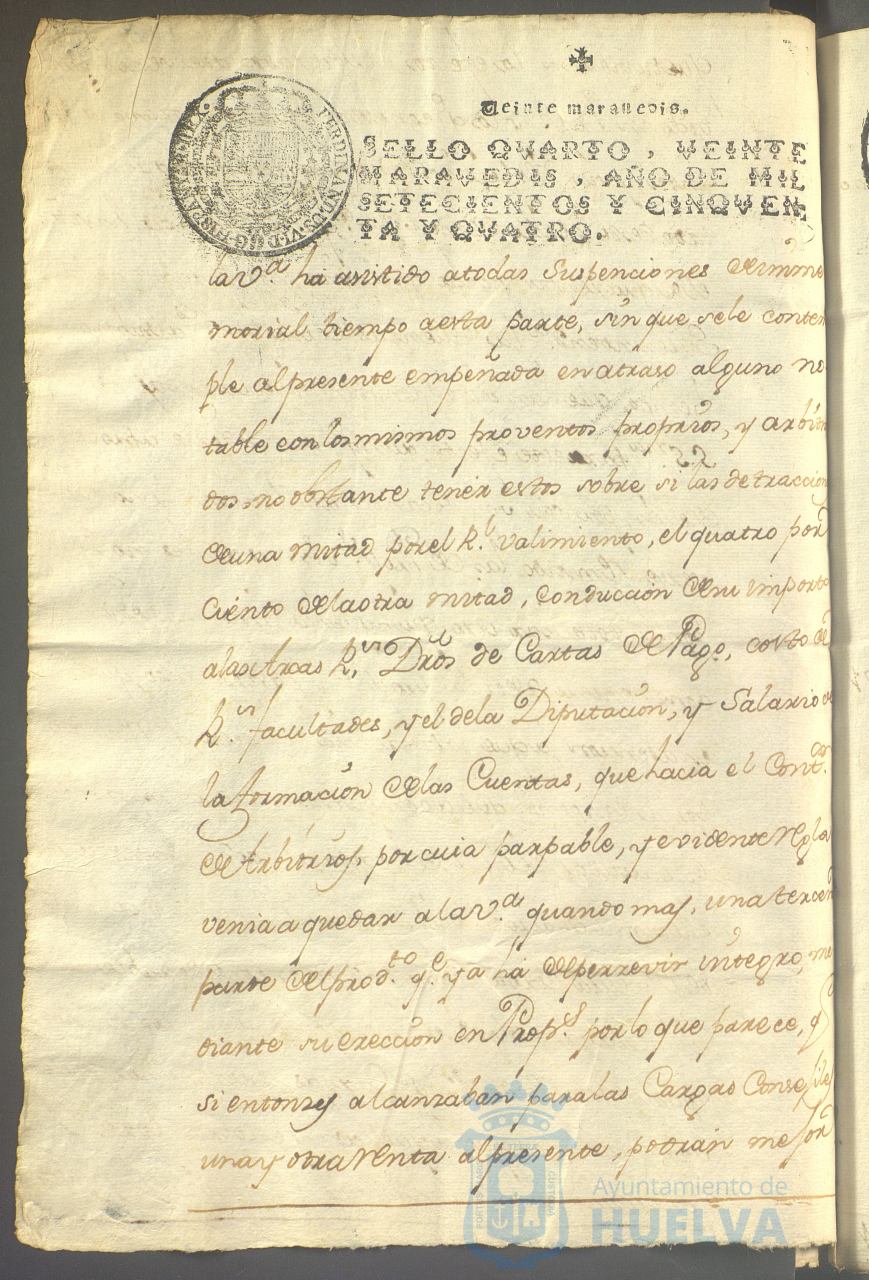 Veinte marauedis.
SELLO QVARTO, VEINTE
MARAVEDIS, AÑO DE MIL
SETECIENTOS Y CINQVEN-
TA Y QVATRO.
FERDINANDUS VI D G HISPANIAR REX
la V.ª ha asistido a todas Suspenciones de imme
morial tiempo a esta parte, sin que se le contem
ple al presente empeñada en atraso alguno no
table con los mismos proventos proprios, y arbitri
dos, no obstante tener estos sobre si las detraccion
de una mitad por el R.l valimiento, el quatro por
Ciento de la otra mitad, conduccion de su import
a las Arcas R.s Dros de Cartas de Pago, costo de
R.s facultades, y el de la Diputacion, y Salario de
la formacion de las Cuentas, que hacia el Cont.or
de Arbitrios, por cuia parpable, y evidente regla
venia a quedar a la V.ª quando mas, una tercer
parte del prod.to q.e ya ha de perrevir integro, me
diante su ereccion en Prop.s por lo que parece, q
si entonzes alcanzaban para las Cargas Consegiles
una y otra renta al presente, podran mejor
Ayuntamiento de
HUELVA